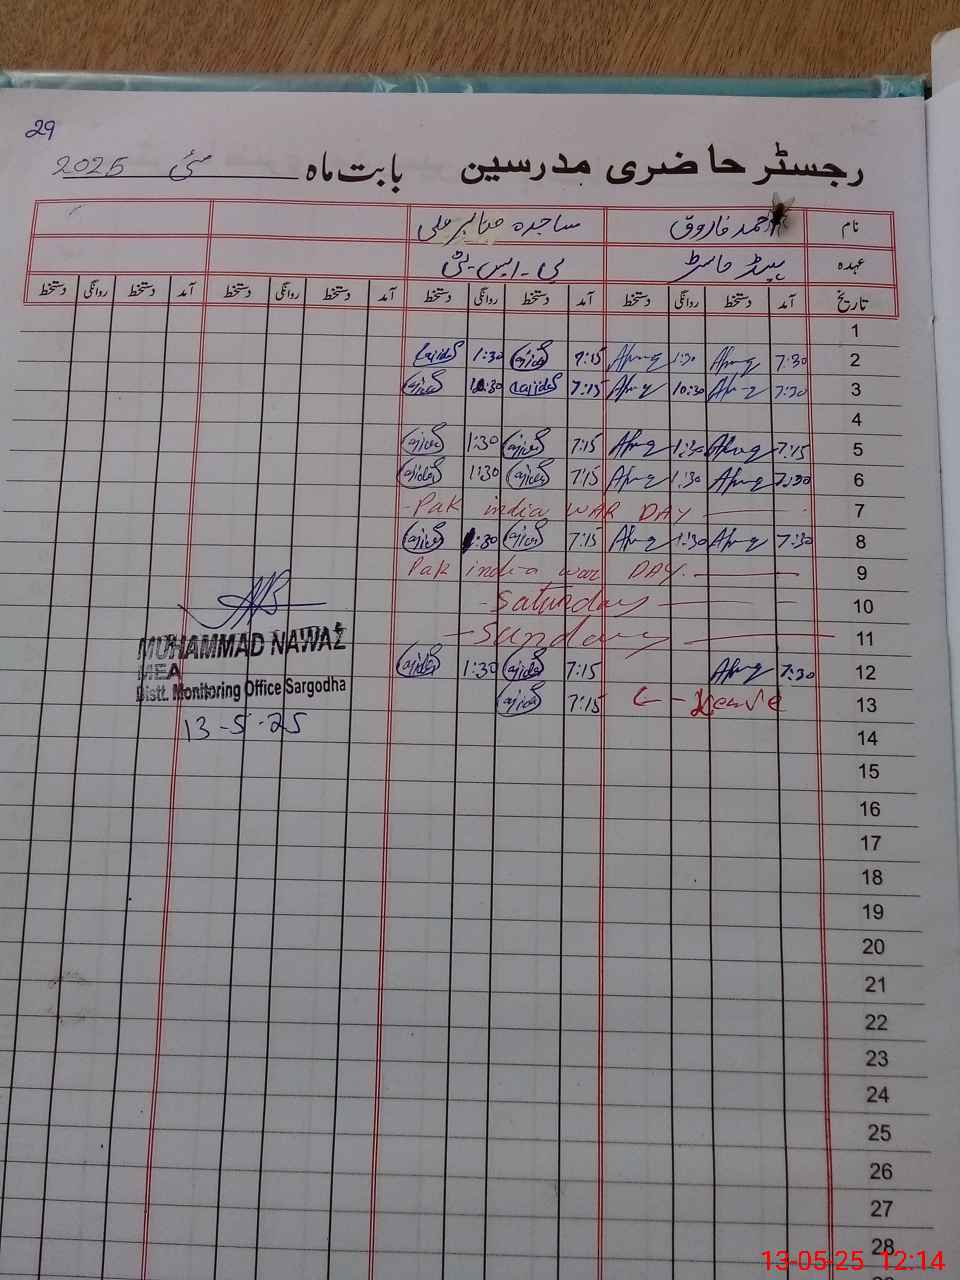 29
رجسٹر حاضری مدرسین بابت ماہ مئی 2025
نام احمد فاروق ساجدہ صابر علی
عہدہ ہیڈ ماسٹر پی۔ایس۔ٹی
تاریخ آمد دستخط روانگی دستخط آمد دستخط روانگی دستخط آمد دستخط روانگی دستخط آمد دستخط روانگی دستخط
1
2 7:30 1:30 7:15 1:30
3 7:30 10:30 7:15 10:30
4
5 7:15 1:30 7:15 1:30
6 7:30 1:30 7:15 1:30
7 Pak india WAR DAY
8 7:30 1:30 7:15 1:30
9 Pak india war DAY.
10 Saturday
11 Sunday
12 7:30 7:15 1:30
13 Leave 7:15
MUHAMMAD NAWAZ
MEA
Distt. Monitoring Office Sargodha
13-5-25
14
15
16
17
18
19
20
21
22
23
24
25
26
27
28
13-05-25 12:14